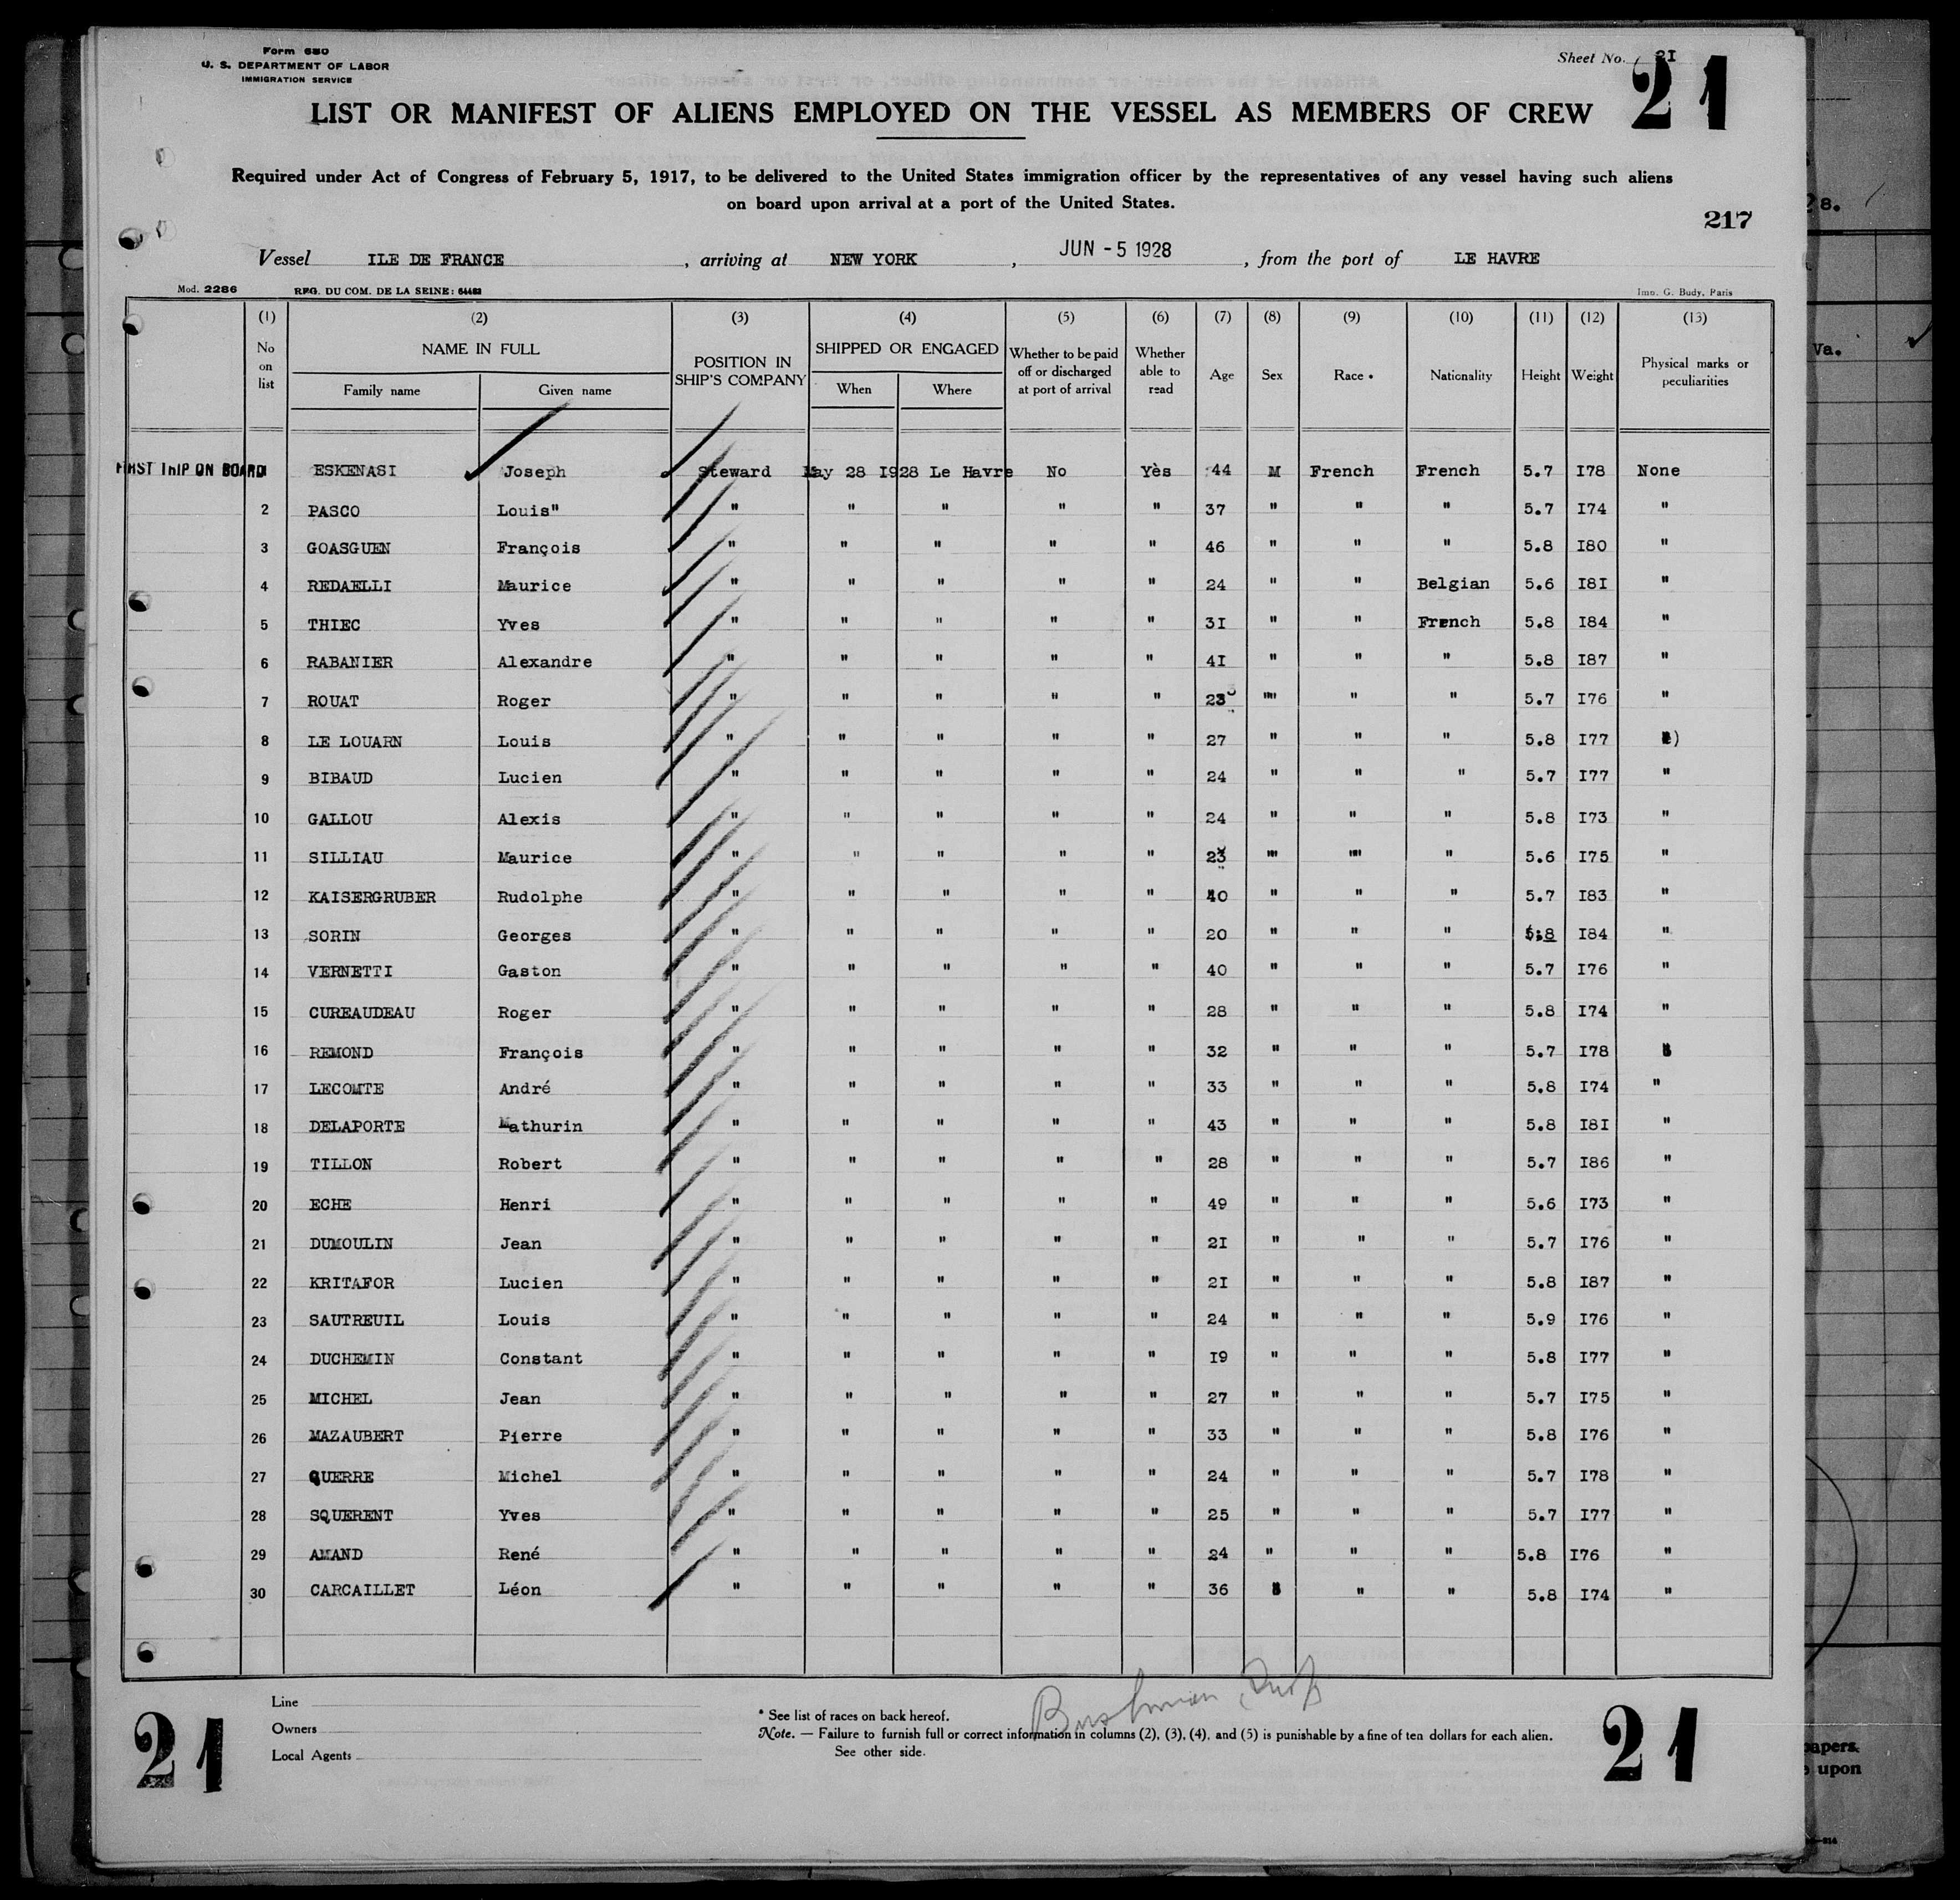 Form 680
U. S. DEPARTMENT OF LABOR
IMMIGRATION SERVICE
Sheet No. 2I
21
LIST OR MANIFEST OF ALIENS EMPLOYED ON THE VESSEL AS MEMBERS OF CREW
Required under Act of Congress of February 5, 1917, to be delivered to the United States immigration officer by the representatives of any vessel having such aliens
on board upon arrival at a port of the United States.
217
Vessel ILE DE FRANCE , arriving at NEW YORK , JUN - 5 1928 , from the port of LE HAVRE
Mod. 2286 REG. DU COM. DE LA SEINE: 64483 Imp. G. Budy, Paris
(1) (2) (3) (4) (5) (6) (7) (8) (9) (10) (11) (12) (13)
No on list NAME IN FULL Family name Given name POSITION IN SHIP'S COMPANY SHIPPED OR ENGAGED When Where Whether to be paid off or discharged at port of arrival Whether able to read Age Sex Race * Nationality Height Weight Physical marks or peculiarities
FIRST TRIP ON BOARD 1 ESKENASI Joseph Steward May 28 I928 Le Havre No Yès 44 M French French 5.7 I78 None
2 PASCO Louis" " " " " " 37 " " " 5.7 I74 "
3 GOASGUEN François " " " " " 46 " " " 5.8 I80 "
4 REDAELLI Maurice " " " " " 24 " " Belgian 5.6 I8I "
5 THIEC Yves " " " " " 3I " " French 5.8 I84 "
6 RABANIER Alexandre " " " " " 4I " " " 5.8 I87 "
7 ROUAT Roger " " " " " 23 " " " 5.7 I76 "
8 LE LOUARN Louis " " " " " 27 " " " 5.8 I77 )
9 BIBAUD Lucien " " " " " 24 " " " 5.7 I77 "
10 GALLOU Alexis " " " " " 24 " " " 5.8 I73 "
11 SILLIAU Maurice " " " " " 23 " " " 5.6 I75 "
12 KAISERGRUBER Rudolphe " " " " " 40 " " " 5.7 I83 "
13 SORIN Georges " " " " " 20 " " " 5.8 I84 "
14 VERNETTI Gaston " " " " " 40 " " " 5.7 I76 "
15 CUREAUDEAU Roger " " " " " 28 " " " 5.8 I74 "
16 REMOND François " " " " " 32 " " " 5.7 I78
17 LECOMTE André " " " " " 33 " " " 5.8 I74 "
18 DELAPORTE Mathurin " " " " " 43 " " " 5.8 I8I "
19 TILLON Robert " " " " " 28 " " " 5.7 I86 "
20 ECHE Henri " " " " " 49 " " " 5.6 I73 "
21 DUMOULIN Jean " " " " " 2I " " " 5.7 I76 "
22 KRITAFOR Lucien " " " " " 2I " " " 5.8 I87 "
23 SAUTREUIL Louis " " " " " 24 " " " 5.9 I76 "
24 DUCHEMIN Constant " " " " " I9 " " " 5.8 I77 "
25 MICHEL Jean " " " " " 27 " " " 5.7 I75 "
26 MAZAUBERT Pierre " " " " " 33 " " " 5.8 I76 "
27 QUERRE Michel " " " " " 24 " " " 5.7 I78 "
28 SQUERENT Yves " " " " " 25 " " " 5.7 I77 "
29 AMAND René " " " " " 24 " " " 5.8 I76 "
30 CARCAILLET Léon " " " " " 36 " " 5.8 I74 "
Line
Owners
Local Agents
* See list of races on back hereof.
Note. — Failure to furnish full or correct information in columns (2), (3), (4), and (5) is punishable by a fine of ten dollars for each alien.
See other side.
21
21
8.
Va.
papers
upon